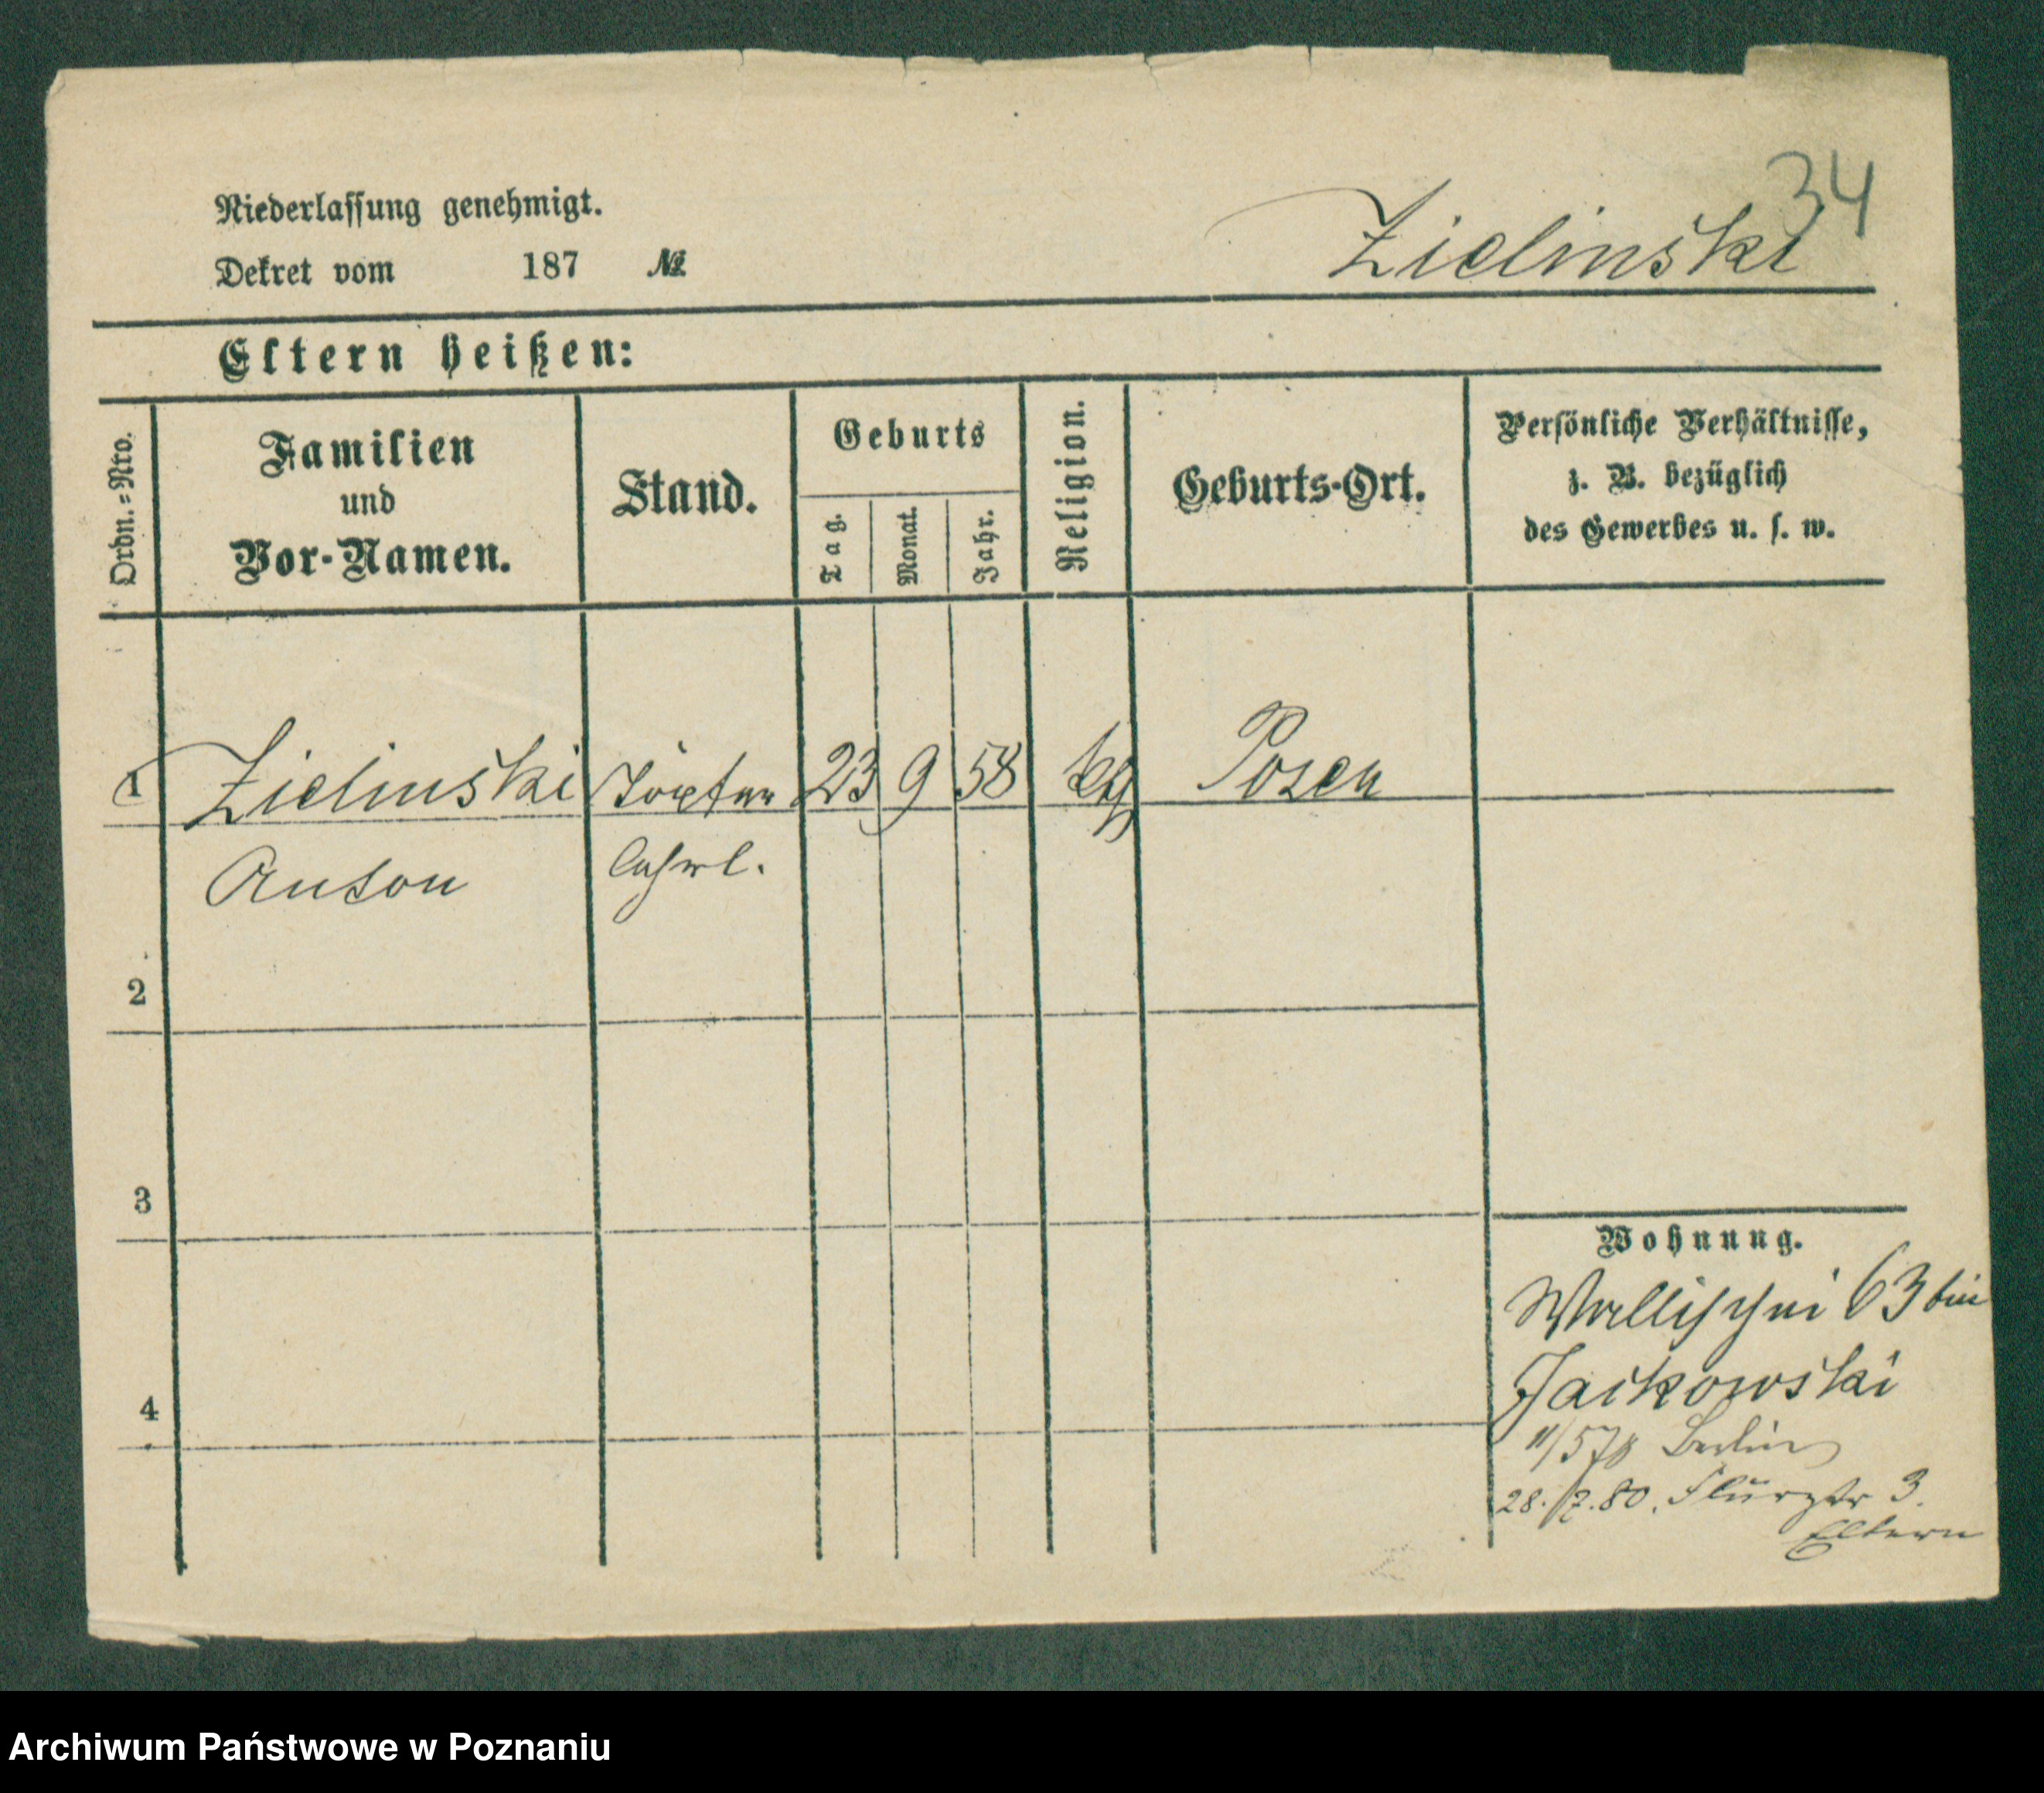 34
Niederlassung genehmigt.
Zielinski
Dekret vom 187 №
Eltern heißen:
Ordn.=Nro.
Familien
und
Vor-Namen.
Stand.
Geburts
Tag.
Monat.
Jahr.
Religion.
Geburts-Ort.
Persönliche Verhältnisse,
z. B. bezüglich
des Gewerbes u. s. w.
1 Zielinski Töpfer 23 9 58 kth Posen
Anton
2
3
4
Wohnung.
Wallischei 63 bei
Jackowski
11/578 Berlin
28. 7. 80. Flurstr 3.
Eltern
Archiwum Państwowe w Poznaniu